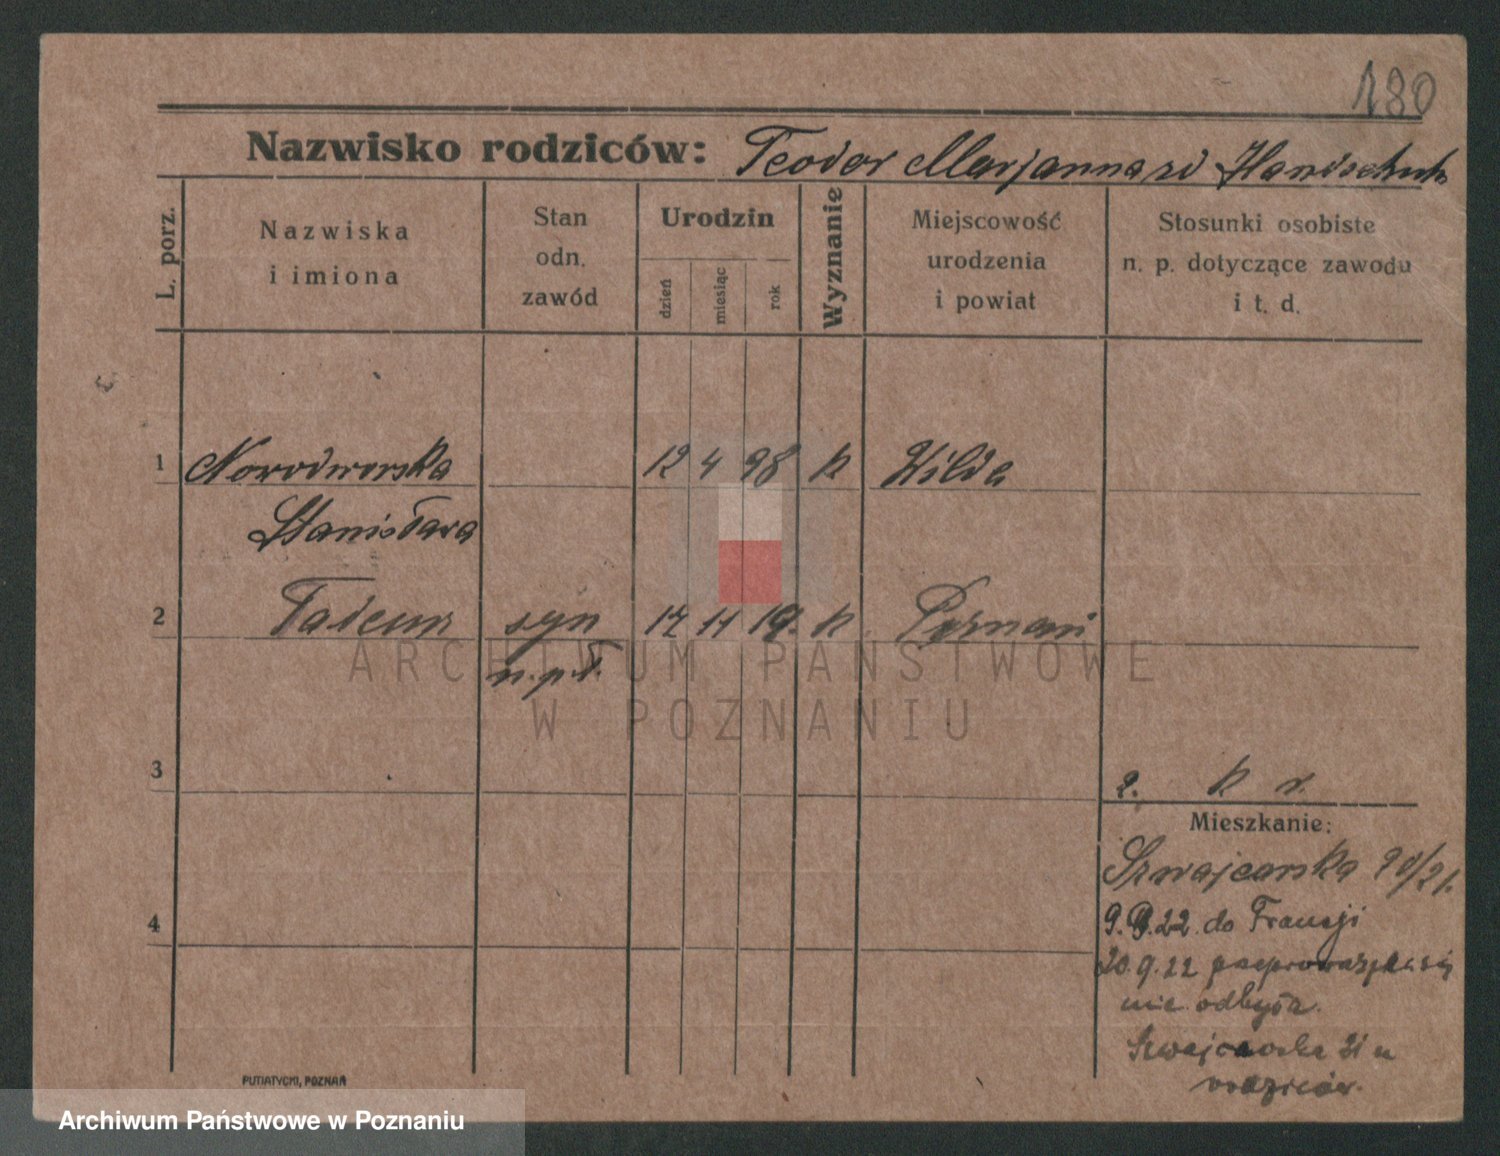 180
Nazwisko rodziców: Teodor Marjanna zd Handschuh
L. porz.
Nazwiska i imiona
Stan odn. zawód
Urodzin
dzień
miesiąc
rok
Wyznanie
Miejscowość urodzenia i powiat
Stosunki osobiste n. p. dotyczące zawodu i t. d.
1 Nowodworska 12 4 98 k Wilda
Stanisława
2 Tadeusz syn 17 11 19. k. Poznań
n. pł.
ARCHIWUM PAŃSTWOWE
W POZNANIU
3
2. k r.
Mieszkanie:
Szwajcarska 20/21.
9.9.22 do Francji
20.9.22 przeprowadzka się
nie odbyła.
Szwajcarska 21 u
rodziców.
4
PUTIATYCKI, POZNAŃ
Archiwum Państwowe w Poznaniu